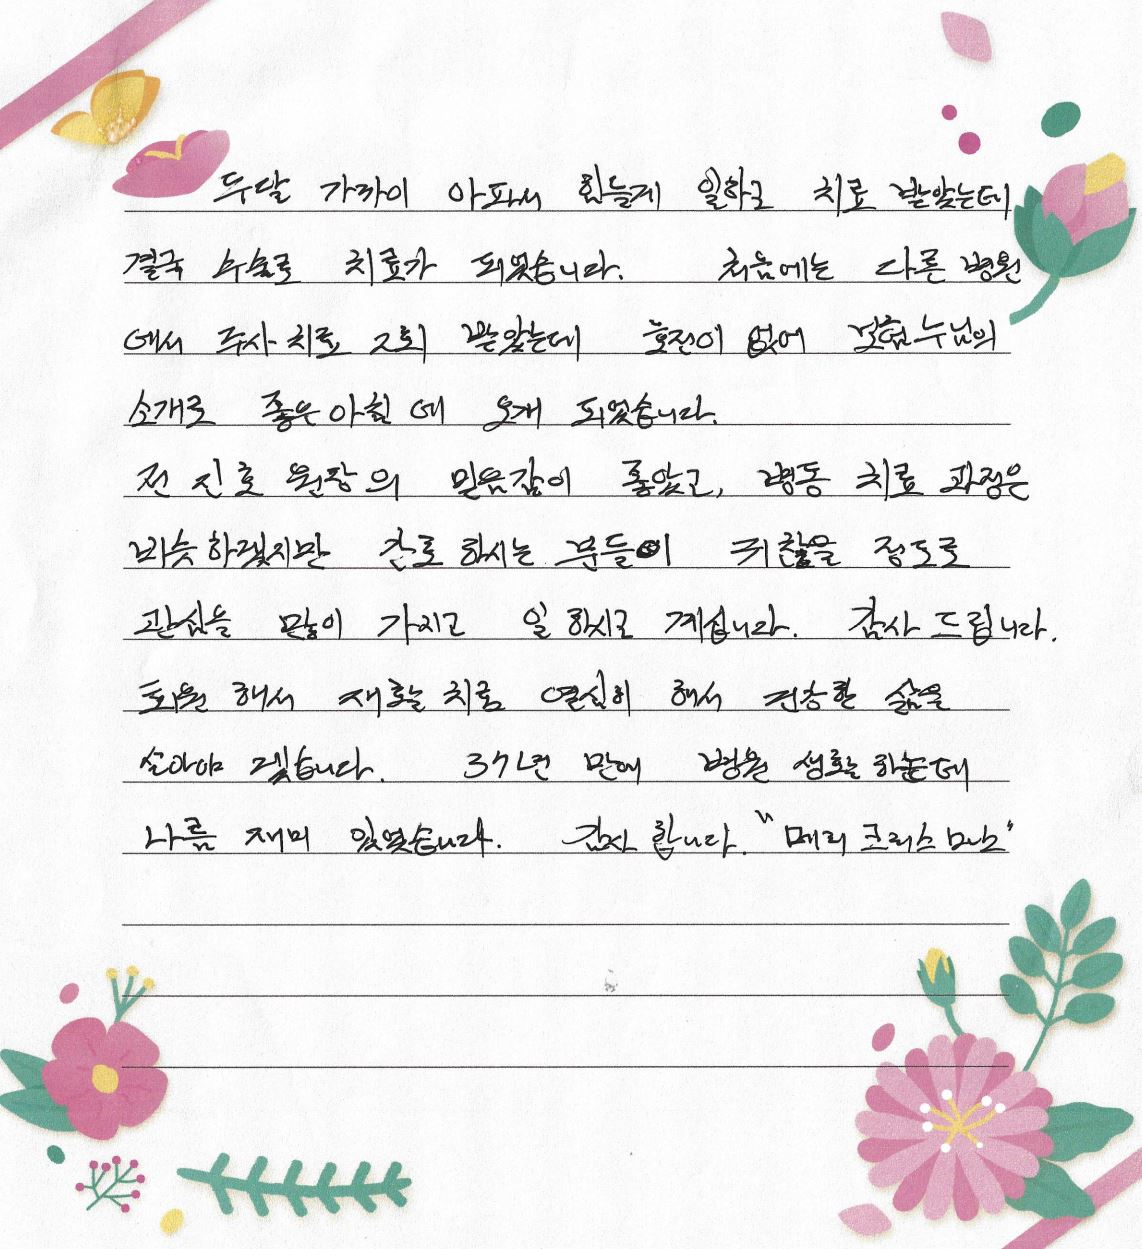 두달 가까이 아파서 힘들게 일하고 치료 받았는데
결국 수술로 치료가 되었습니다. 처음에는 다른 병원
에서 주사 치료 2회 받았는데 호전이 없어 보험 누님의
소개로 좋은아침 에 오게 되었습니다.
전 진호 원장의 믿음감이 좋았고, 병동 치료 과정은
비슷하겠지만 간호 하시는 분들이 귀찮을 정도로
관심을 많이 가지고 일 하시고 계십니다. 감사 드립니다.
퇴원 해서 재활 치료 열심히 해서 건강한 삶을
살아야 겠습니다. 37년 만에 병원 생활 하는데
나름 재미 있었습니다. 감사 합니다. "메리 크리스 마스"